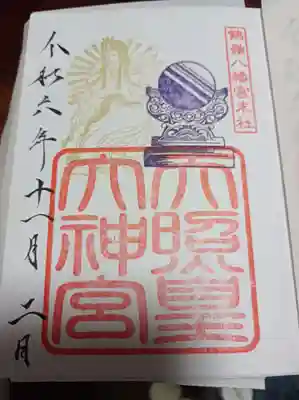 鶴嶺八幡宮末社
天照皇
大神宮
令和六年十一月二日